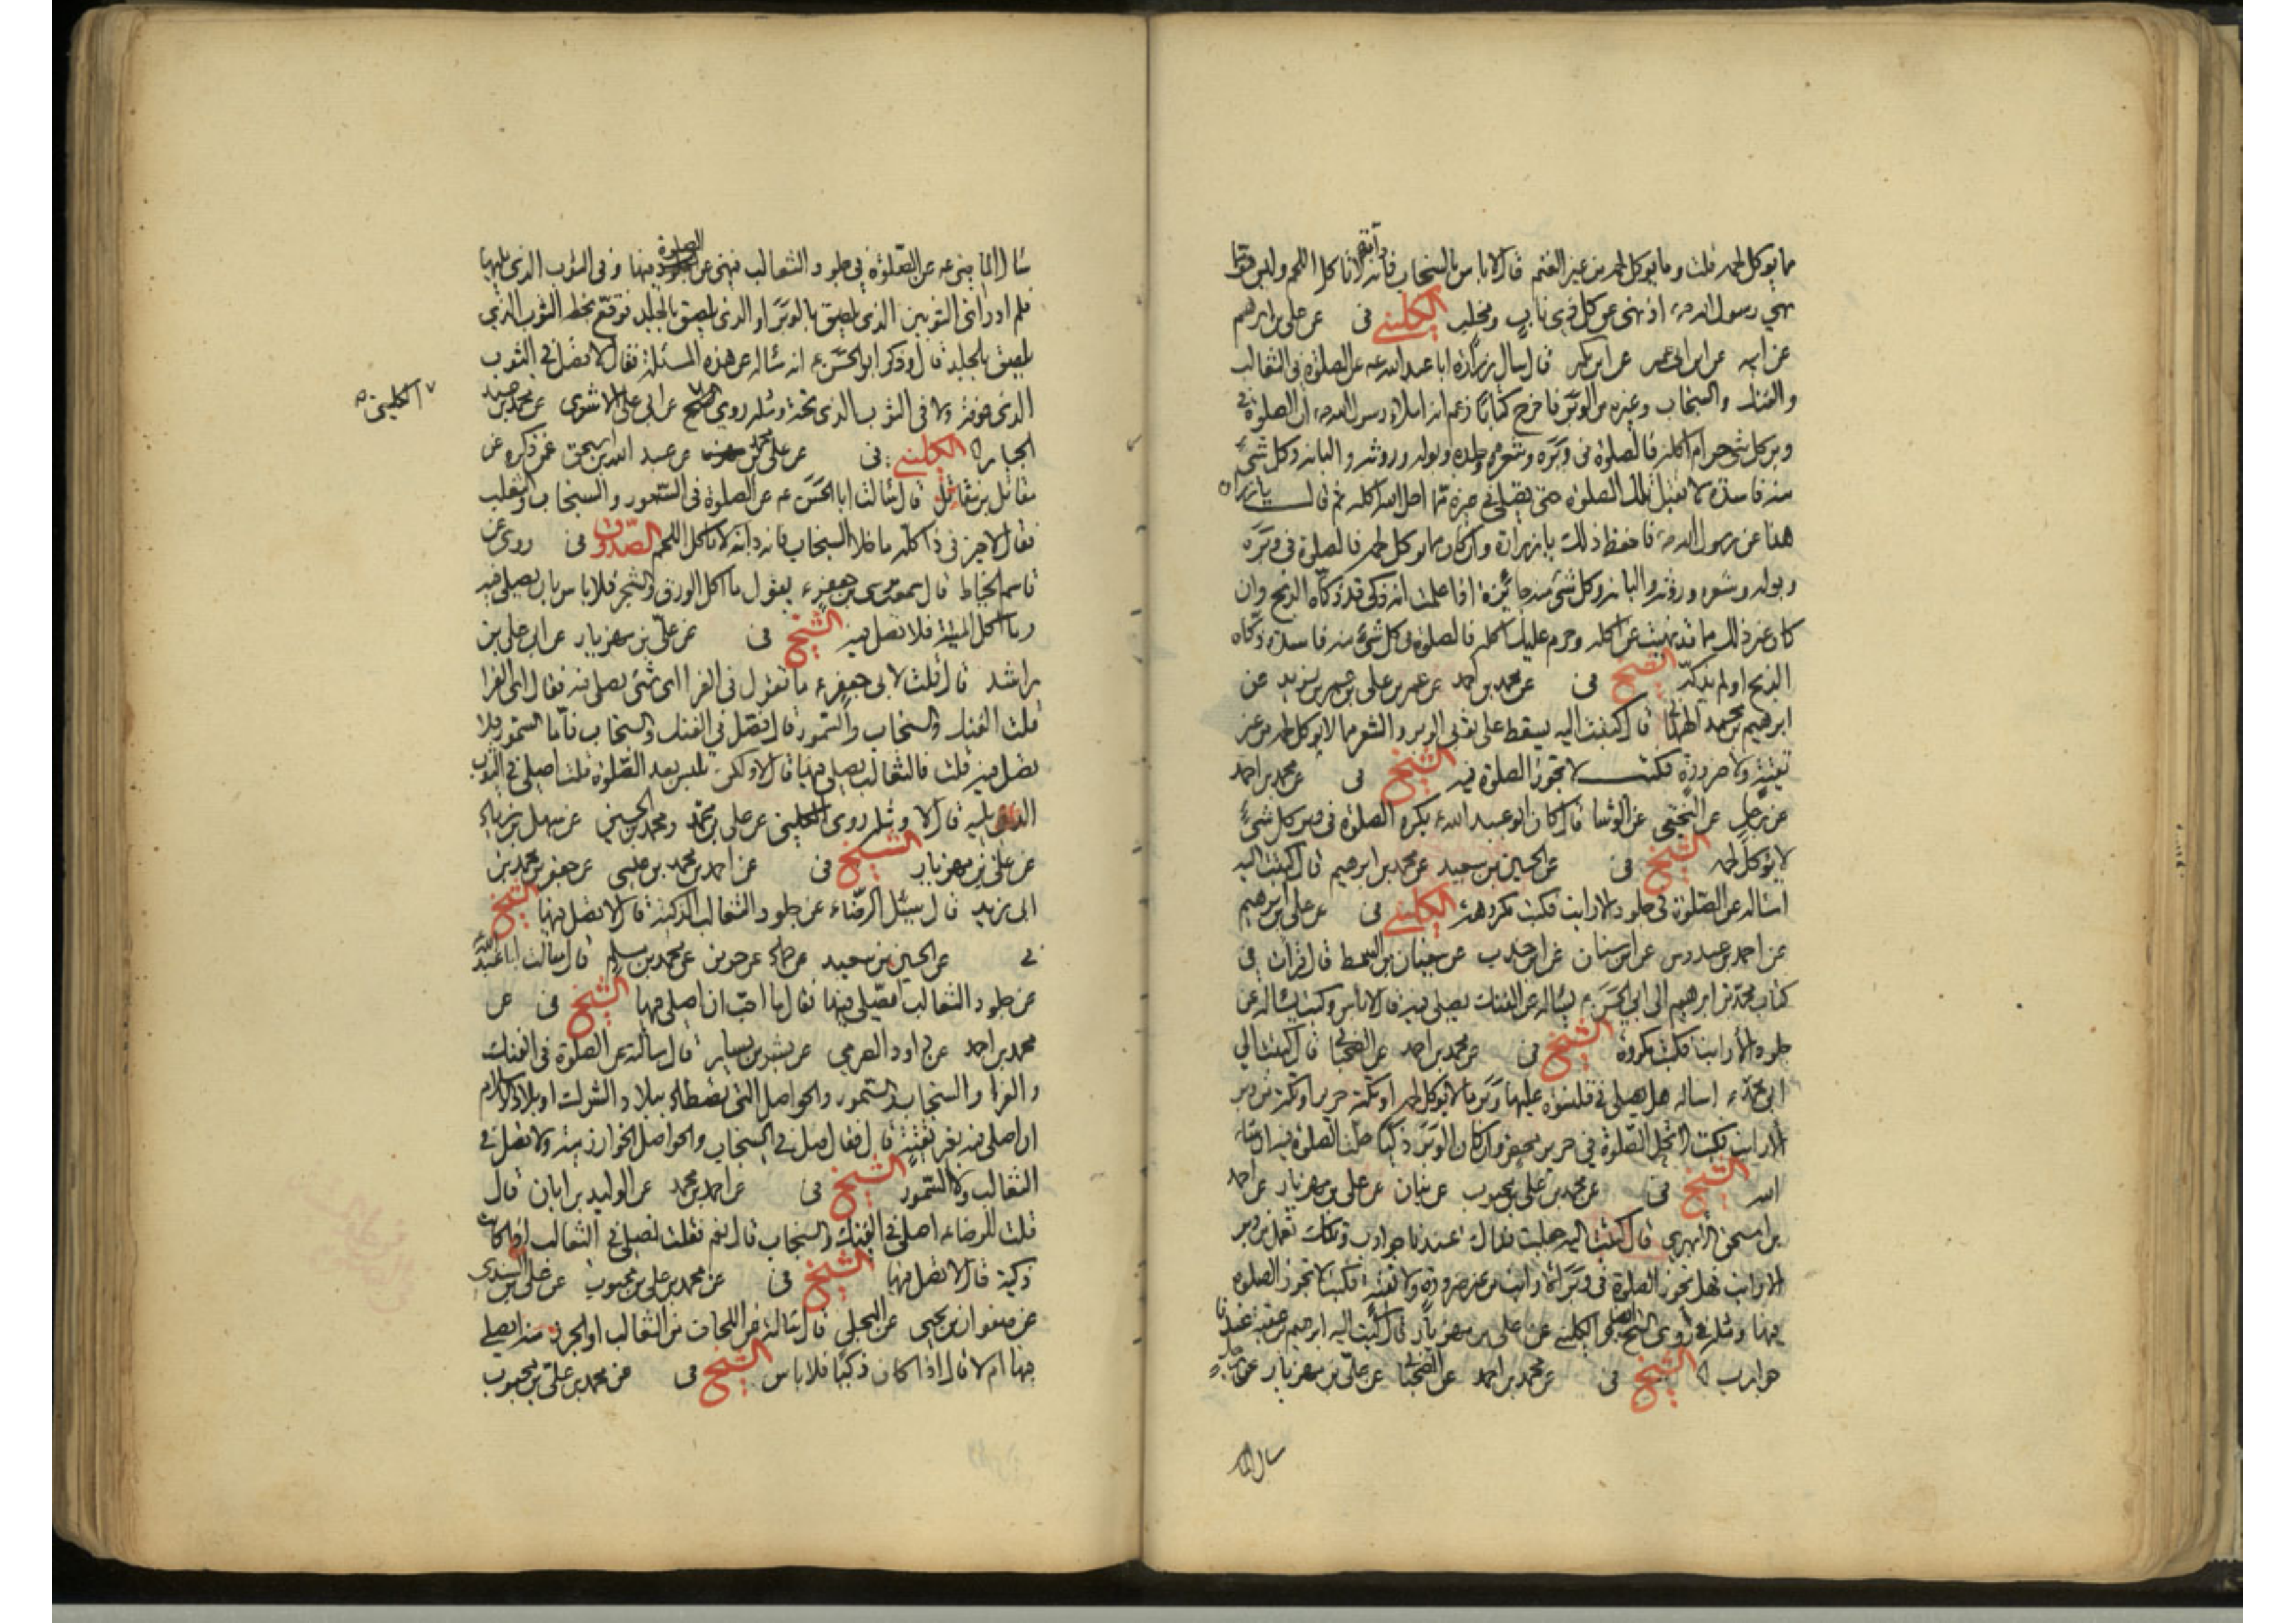 ما يوكل لحمه قلت وما يوكل لحمه من غير الغنم قال لا باس بالسنجاب فانه دابة لا تاكل اللحم وليس هو مما
نهى رسول الله ص اذ نهى عن كل ذي ناب ومخلب الكليني في عن علي بن ابرهيم
عن ابيه عن ابن ابي عمير عن ابن بكير قال سال زرارة ابا عبد الله عه عن الصلوة في الثعالب
والفنك والسنجاب وغيره من الوبر فاخرج كتابا زعم انه املاء رسول الله ص ان الصلوة في
وبر كل شئ حرام اكله فالصلوة في وبره وشعره وجلده وبوله وروثه والبانه وكل شئ
منه فاسدة لا تقبل تلك الصلوة حتى يصلي في غيره مما احل الله اكله ثم قال يا زرارة
هذا عن رسول الله ص فاحفظ ذلك يا زرارة وان كان مما يوكل لحمه فالصلوة في وبره
وبوله وشعره وروثه والبانه وكل شئ منه جائزة اذا علمت انه ذكي قد ذكاه الذبح وان
كان غير ذلك مما قد نهيت عن اكله وحرم عليك اكله فالصلوة في كل شئ منه فاسدة ذكاه
الذبح او لم يذكه الشيخ في عن محمد بن احمد عن عمر بن علي بن عمر بن يزيد عن
ابرهيم بن محمد الهمداني قال كتبت اليه يسقط على ثوبي الوبر والشعر مما لا يوكل لحمه من غير
تقية ولا ضرورة فكتب لا تجوز الصلوة فيه الشيخ في عن محمد بن احمد
عن رجل عن النخعي عن الوشا قال كان ابو عبد الله ع يكره الصلوة في وبر كل شئ
لا يوكل لحمه الشيخ في عن الحسين بن سعيد عن محمد بن ابرهيم قال كتبت اليه
اساله عن الصلوة في جلود الارانب فكتب مكروهة الكليني في عن علي بن ابرهيم
عن احمد بن عبدوس عن ابن سنان عن ابن جندب عن سفيان بن السمط قال قرات في
كتاب محمد بن ابرهيم الى ابي الحسن ع يساله عن الفنك يصلى فيه فقال لا باس وكتب يساله عن
جلود الأرانب فكتب مكروه الشيخ في عن محمد بن احمد عن الصحنا قال كتبت الى
ابي محمد ع اساله هل يصلى في قلنسوة عليها وبر ما لا يوكل لحمه او تكة حرير او تكة من وبر
الارانب فكتب لا تحل الصلوة في حرير محض وان كان الوبر ذكيا حلت الصلوة فيه ان شاء
الله الشيخ في عن محمد بن علي بن محبوب عن بنان عن علي بن مهزيار عن احمد
بن اسحق الأبهري قال كتبت اليه جعلت فداك عندنا جوارب وتكك تعمل من وبر
الارانب فهل تجوز الصلوة في وبر الارانب من غير ضرورة ولا تقية فكتب لا تجوز الصلوة
فيها ومثله روى الكليني عن علي بن مهزيار قال كتب اليه ابرهيم بن عقبة عندنا
جوارب الشيخ في عن محمد بن احمد عن الصحنا عن علي بن مهزيار عن رجل
سال الما
سال الماضي عه عن الصلوة في جلود الثعالب فنهى عن الصلوة فيها وفي الثوب الذي يليها
فلم ادر اي الثوبين الذي يلصق بالوبر او الذي يلصق بالجلد فوقع بخطه الثوب الذي
يلصق بالجلد قال وذكر ابو الحسن ع انه ساله عن هذه المسئلة فقال لا تصل في الثوب
الذي فوقه ولا في الثوب الذي تحته ومثله روى عن ابي علي الاشعري عن محمد بن عبد
الكليني
الجبار الكليني في عن علي بن محمد عن عبد الله بن اسحق عمن ذكره عن
مقاتل بن مقاتل قال سالت ابا الحسن عه عن الصلوة في السمور والسنجاب والثعلب
فقال لا خير في ذا كله ما خلا السنجاب فانه دابة لا تاكل اللحم الصدوق في روى عن
قاسم الخياط قال سمعت موسى بن جعفر ع يقول ما اكل الورق والشجر فلا باس بان يصلى فيه
وما اكل الميتة فلا تصل فيه الشيخ في عن علي بن مهزيار عن ابي علي بن
راشد قال قلت لابي جعفر ع ما تقول في الفرا اي شئ يصلى فيه فقال اي الفرا
قلت الفنك والسنجاب والسمور قال فصل في الفنك والسنجاب فاما السمور فلا
تصل فيه قلت فالثعالب يصلى فيها قال لا ولكن تلبس بعد الصلوة قلت اصلي في الثوب
الذي يليه قال لا ومثله روى الكليني عن علي بن محمد ومحمد بن الحسن عن سهل بن زياد
عن علي بن مهزيار الشيخ في عن احمد بن محمد بن عيسى عن جعفر بن محمد بن
ابي زيد قال سئل الرضا ع عن جلود الثعالب الذكية قال لا تصل فيها الشيخ
في عن الحسين بن سعيد عن حماد عن حريز عن محمد بن مسلم قال سالت ابا عبد الله
عن جلود الثعالب ايصلى فيها فقال ما احب ان اصلي فيها الشيخ في عن
محمد بن احمد عن داود الصرمي عن بشر بن بشار قال سالته عن الصلوة في الفنك
والفرا والسنجاب والسمور والحواصل التي تصطاد ببلاد الشرك او بلاد الاسلام
ان اصلي فيه بغير تقية قال فقال صل في السنجاب والحواصل الخوارزمية ولا تصل في
الثعالب ولا السمور الشيخ في عن احمد بن محمد عن الوليد بن ابان قال
قلت للرضا ع اصلي في الفنك والسنجاب قال نعم فقلت نصلي في الثعالب اذا كانت
ذكية قال لا تصل فيها الشيخ في عن محمد بن علي بن محبوب عن علي بن السندي
عن صفوان بن يحيى عن البجلي قال سالته عن اللحاف من الثعالب او الجرز منه ايصلي
فيها ام لا قال اذا كان ذكيا فلا باس الشيخ في عن محمد بن علي بن محبوب